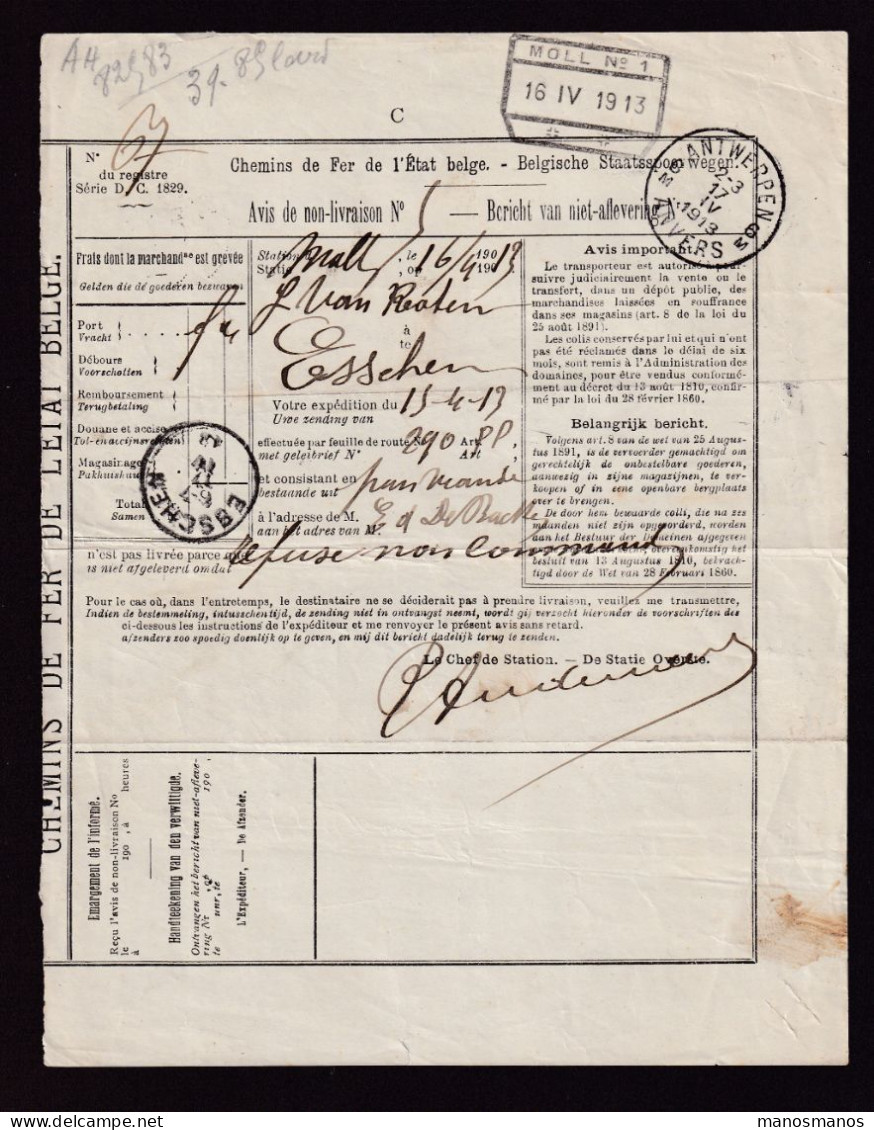 AH
82 83
39 -
MOLL Nº 1
16 IV 1913
C
Nº
du registre
Série D, C. 1829.
Chemins de Fer de l'État belge. - Belgische Staatsspoorwegen.
Avis de non-livraison Nº 5 — Bericht van niet-aflevering
ANTWERPEN 6
2-3
17
IV
1913
ANVERS
CHEMINS DE FER DE L'ETAT BELGE.
Frais dont la marchandise est grevée
Gelden die de goederen bezwaren
Port
Vracht
Débours
Voorschotten
Remboursement
Terugbetaling
Douane et accise
Tol- en accijnsrechten
Magasinage
Pakhuishuur
Total
Samen
ESSCHEN
Station Moll, le 16/4 190 13
Statie , op 190
Van Rooten
à
te
Esschen
Votre expédition du 15-4-13
Uwe zending van
effectuée par feuille de route Nº 290 Art. PP
met geleibrief Nº Art.
et consistant en pan viande
bestaande uit
à l'adresse de M. E d De Backer
aan het adres van M.
n'est pas livrée parce que refuse non commande
is niet afgeleverd omdat
Avis important.
Le transporteur est autorisé à pour-
suivre judiciairement la vente ou le
transfert, dans un dépôt public, des
marchandises laissées en souffrance
dans ses magasins (art. 8 de la loi du
25 août 1891).
Les colis conservés par lui et qui n'ont
pas été réclamés dans le délai de six
mois, sont remis à l'Administration des
domaines, pour être vendus conformé-
ment au décret du 13 août 1810, confir-
mé par la loi du 28 février 1860.
Belangrijk bericht.
Volgens art. 8 van de wet van 25 Augus-
tus 1891, is de vervoerder gemachtigd om
gerechtelijk de onbestelbare goederen,
aanwezig in zijne magazijnen, te ver-
koopen of in eene openbare bergplaats
over te brengen.
De door hem bewaarde colli, die na zes
maanden niet zijn opgevorderd, worden
aan het Bestuur der Domeinen afgegeven
om verkocht te worden, overeenkomstig het
besluit van 13 Augustus 1810, bekrach-
tigd door de Wet van 28 Februari 1860.
Pour le cas où, dans l'entretemps, le destinataire ne se déciderait pas à prendre livraison, veuillez me transmettre,
Indien de bestemmeling, intusschentijd, de zending niet in ontvangst neemt, wordt gij verzocht hieronder de voorschriften des
ci-dessous les instructions de l'expéditeur et me renvoyer le présent avis sans retard.
afzenders zoo spoedig doenlijk op te geven, en mij dit bericht dadelijk terug te zenden.
Le Chef de Station. — De Statie Overste.
Emargement de l'informé.
Reçu l'avis de non-livraison Nº
le 190 , à heures
à
Handteekening van den verwittigde.
Ontvangen het bericht van niet-afleve-
ring Nr , op 190 ,
te uur, te
L'Expéditeur, — De Afzender.
manosmanos